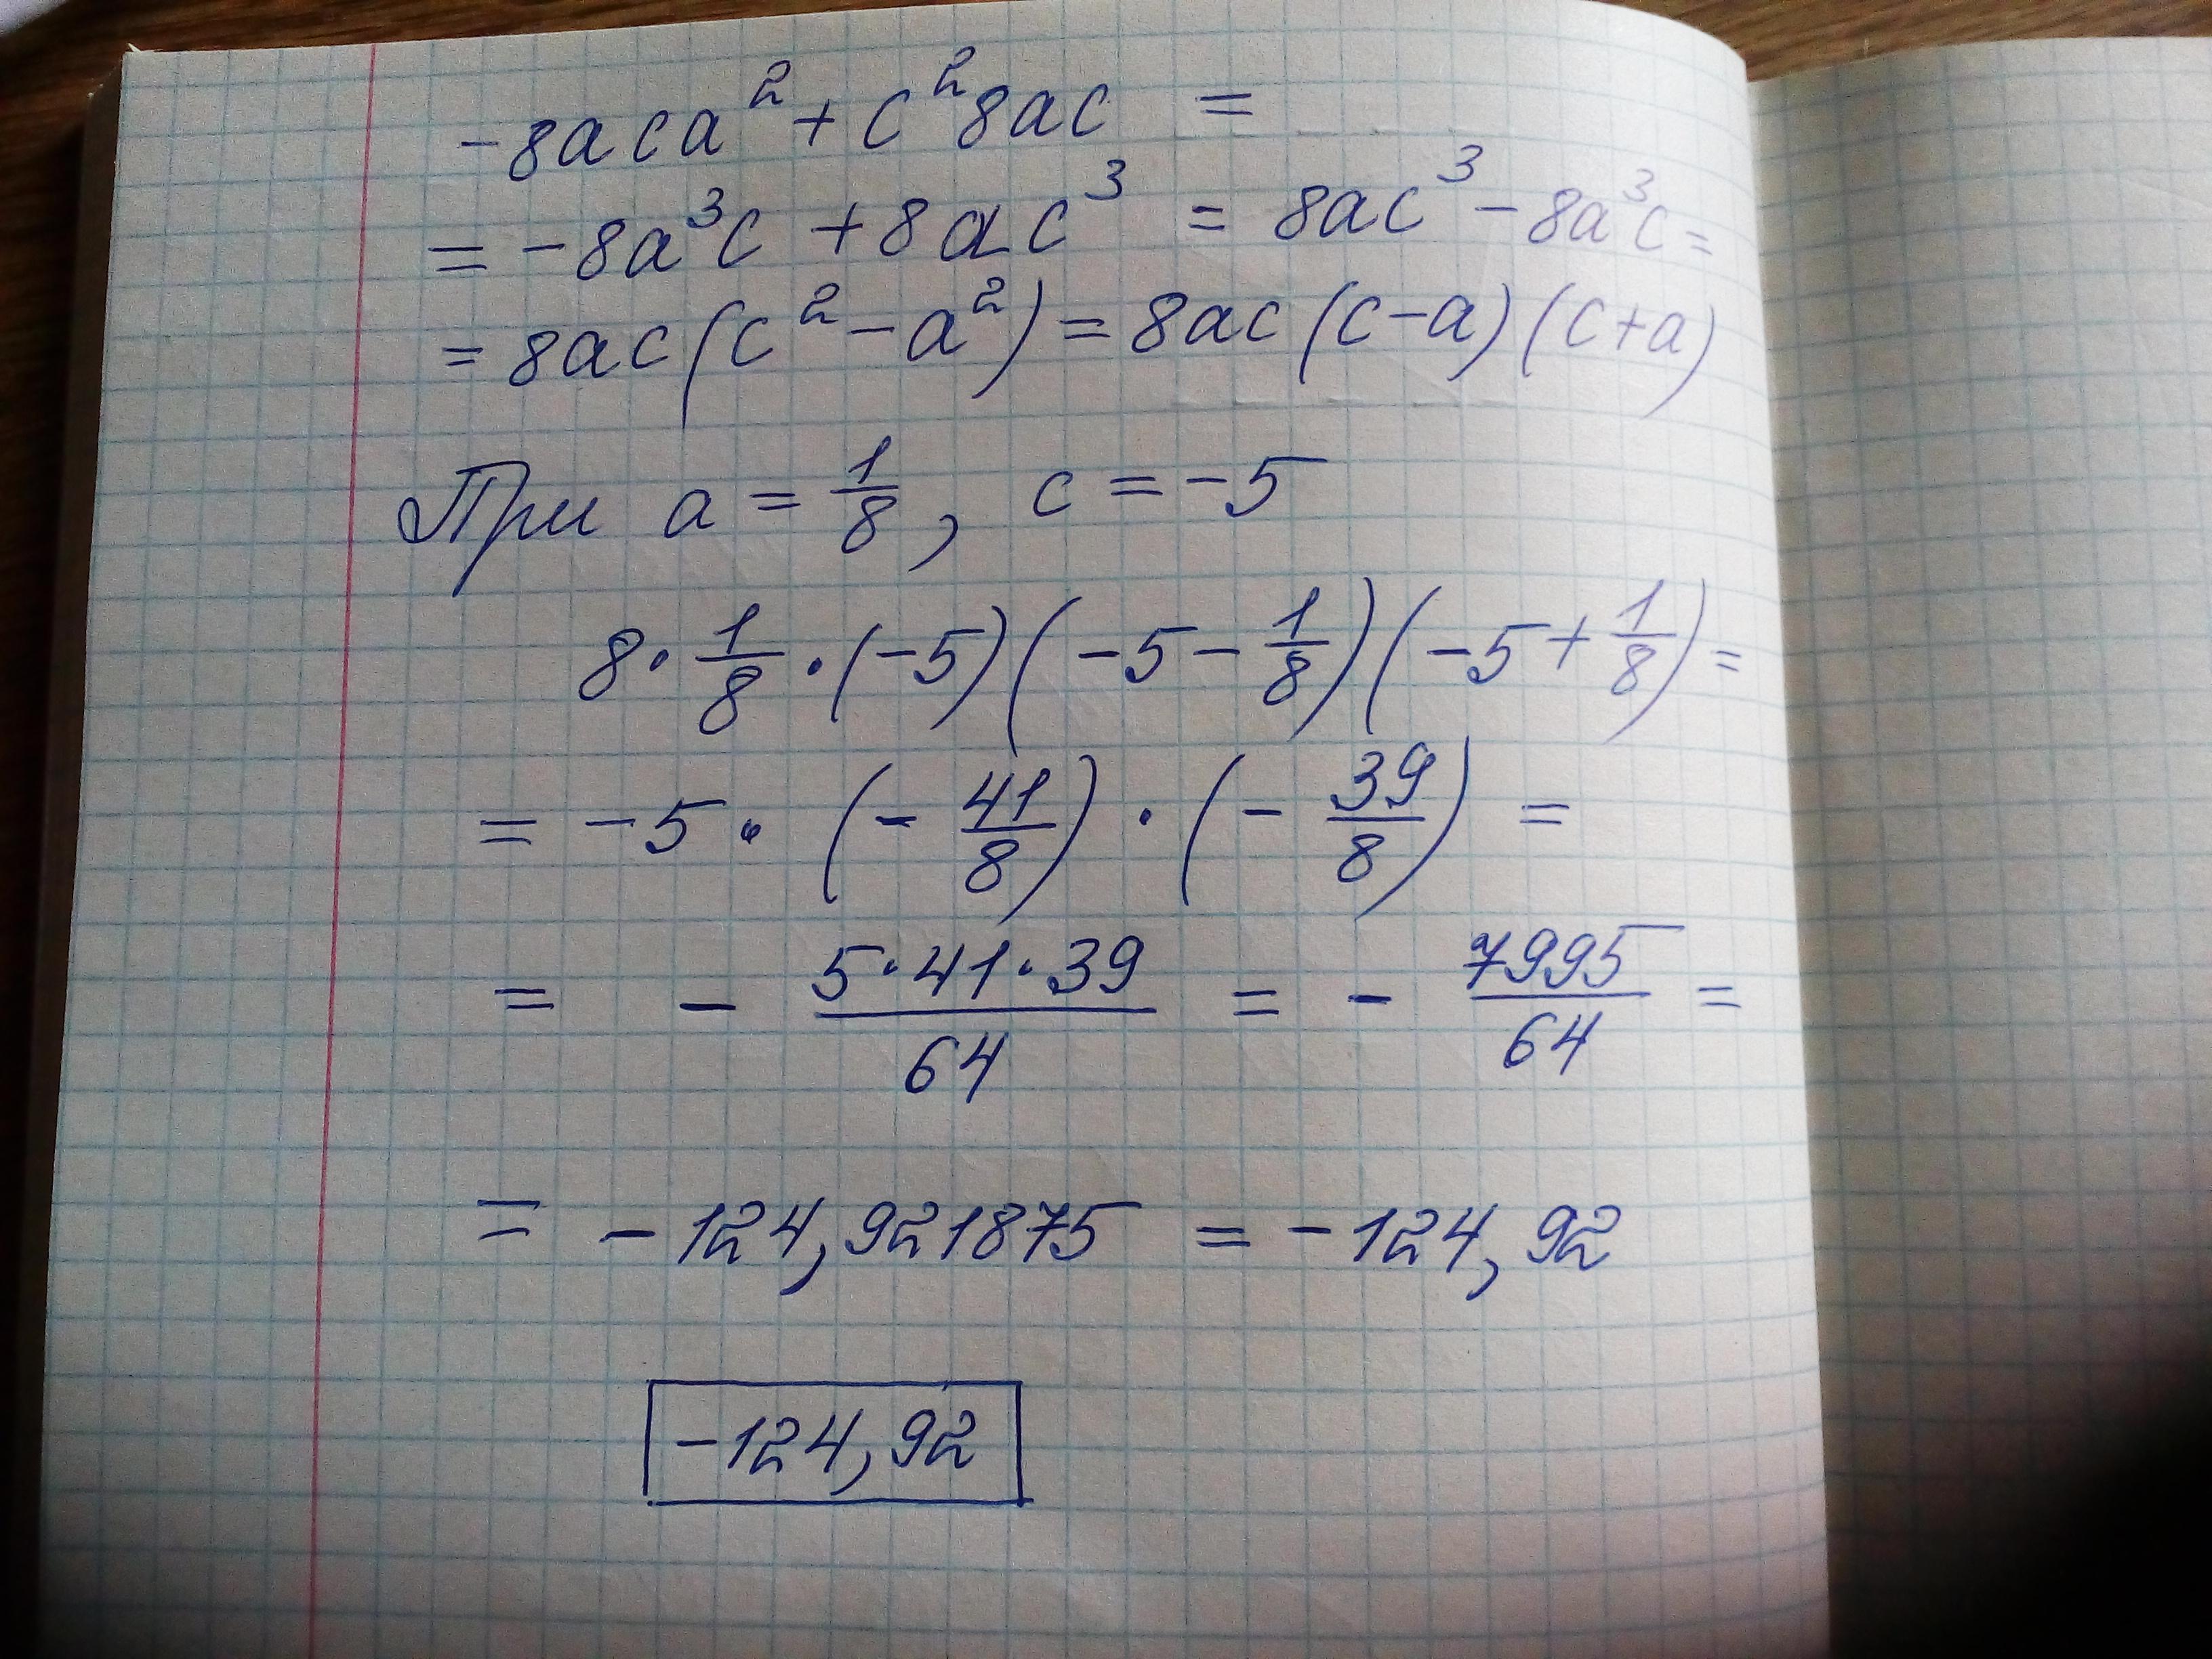 -8aca² + c²8ac =
= -8a³c + 8ac³ = 8ac³ - 8a³c =
= 8ac(c² - a²) = 8ac(c-a)(c+a)
При a = 1/8, c = -5
8 · 1/8 · (-5)(-5 - 1/8)(-5 + 1/8) =
= -5 · (- 41/8) · (- 39/8) =
= - 5·41·39/64 = - 7995/64 =
= -124,921875 = -124,92
-124,92